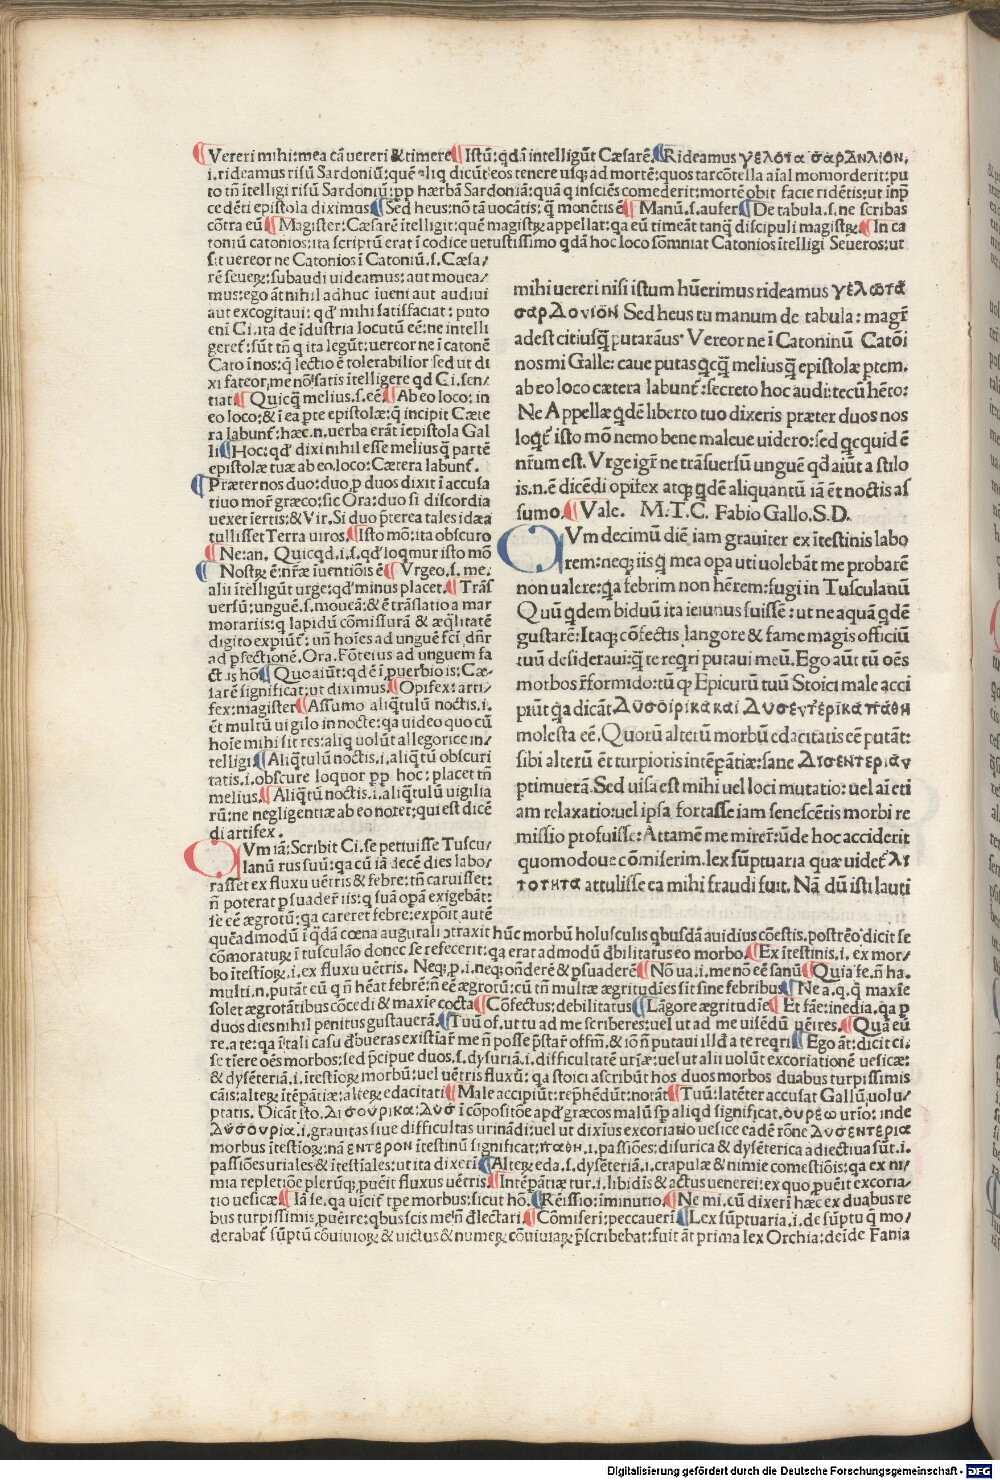 Vereri mihi:mea cā uereri & timere Istū:qdā intelligūt Cæsarē. Rideamus γέλοτα σαρΔΝΛΙΟΝ,
.i.rideamus risū Sardoniū:quē aliq dicūt eos tenere usq; ad mortē:quos tarcōtella aīal momorderit:pu
to tn̄ ītelligi risū Sardoniū:pp hærbā Sardoniā:quā q insciēs comederit:mortē obit facie ridētis:ut īnp̄
cedēti epistola diximus Sed heus:nō tā uocātis:q̄ monētis ē Manū.s.aufer De tabula.s.ne scribas
cōtra eū Magister:Cæsarē ītelligit:quē magistrꝝ appellat:qa eū timeāt tanq̄ discipuli magistrꝝ In ca
toniū catonios:ita scriptū erat ī codice uetustissimo qdā hoc loco sōmniat Catonios ītelligi Seueros:ut
sit uereor ne Catonios ī Catoniū.s.Cæsa/
rē seueꝝ:subaudi uideamus:aut mouea/
mus:ego āt nihil adhuc iueni aut audiui
aut excogitaui:qd' mihi satisfaciat:puto
enī Ci.ita de īdustria locutū eē:ne intelli
geret̄:sūt tn̄ q ita legūt:uereor ne ī catonē
Cato ī nos:q lectio ē tolerabilior sed ut di
xi fateor,me nō satis ītelligere qd Ci.sen/
tiat Quicq̄ melius.s.eē Ab eo loco:in
eo loco:& ī ea pte epistolæ:q incipit Cæte
ra labunt̄:hæc.n.uerba erāt ī epistola Gal
li Hoc:qd' dixi nihil esse melius q̄ partē
epistolæ tuæ ab eo loco:Cætera labunt̄.
Præter nos duo:duo p duos dixit ī accusa
tiuo mor̄ græco:sic Ora:duo si discordia
uexet īertis:& Vir.Si duo p̄terea tales idæa
tullisset Terra uiros. Isto mō:ita obscuro
Ne:an. Quicqd.i.s.qd' loqmur isto mō
Nostꝝ ē:nr̄æ iuentiōis ē Vrgeo.s.me.
alii ītelligūt urge:qd' minus placet. Trās
uersū:unguē.s.moueā:& ē trāslatio a mar
morariis:q lapidū cōmissurā & æqlitatē
digito expiūt̄:un̄ hoīes ad unguē fc̄i dn̄r
ad pfectionē.Ora.Fōteius ad unguem fa
ct is hō Quo aiūt:qdē ī puerbio is:Cæ/
sarē significat:ut diximus. Opifex:arti/
fex:magister Assumo aliqtulū noctis.i.
ēt multū uigilo in nocte:qa uideo quo cū
hoīe mihi sit res:aliq uolūt allegorice in/
telligi Aliqtulū noctis.i.aliqtū obscuri
tatis.i.obscure loquor pp hoc:placet tn̄
melius. Aliqtū noctis.i.aliqtulū uigilia
rū:ne negligentiæ ab eo notet̄:qui est dicē
di artifex.
mihi uereri nisi istum hūerimus rideamus γέλωτα
σαρΔονίον Sed heus tu manum de tabula:magr̄
adest citius q̄ putarāus· Vereor ne ī Catoninū Catōi
nos mi Galle:caue putas qcq̄ melius q̄ epistolæ ptem.
ab eo loco cætera labunt̄:secreto hoc audi:tecū hēto:
Ne Appellæ qdē liberto tuo dixeris præter duos nos
loqt̄ isto mō nemo bene maleue uidero:sed qcquid ē
nr̄um est. Vrge igr̄ ne trāsuersū unguē qd aiūt a stilo
is.n.ē dicēdi opifex atq; qdē aliquantū iā ēt noctis as
sumo. Vale. M.T.C. Fabio Gallo.S.D.
QVm decimū diē iam grauiter ex ītestinis labo
rem:neq; iis q mea opa uti uolebāt me probarē
non ualere:qa febrim non hērem:fugi in Tusculanū
Quū qdem biduū ita ieiunus fuissē:ut ne aquā qdē
gustarē:Itaq; cōfectis langore & fame magis officiū
tuū desideraui:q̄ te reqri putaui meū. Ego aūt tū oēs
morbos r̄formido:tū qp Epicurū tuū Stoici male acci
piūt qa dicāt ΔυσοιρικακαΙ ΔυσεντερΙκα πάθη
molesta eē. Quorū alterū morbū edacitatis eē putāt:
sibi alterū ēt turpioris intēpātiæ:sane ΔΙσεΝτερΙαν
ptimuerā. Sed uisa est mihi uel loci mutatio: uel aī eti
am relaxatio:uel ipsa fortasse iam senescētis morbi re
missio profuisse: Attamē me mirer̄:ūde hoc acciderit
quomodoue cōmiserim. lex sūptuaria quæ uidet̄ λι
τοτητα attulisse ea mihi fraudi fuit. Nā dū isti lauti
QVm iā:Scribit Ci.se petiuisse Tuscu/
lanū rus suū:qa cū iā decē dies labo/
rasset ex fluxu uētris & febre:tn̄ caruisset:
n̄ poterat psuader̄ iis:q suā opā exigebāt:
se eē ægrotū:qa careret febre:expōit autē
quēadmodū ī qdā cœna augurali ɔtraxit hūc morbū holusculis qbusdā auidius cōestis.postrēo dicit se
cōmoratur̄ ī tusculāo donec se refecerit:qa erat admodū dbilitatus eo morbo. Ex ītestinis.i.ex mor/
bo ītestioꝝ.i.ex fluxu uētris. Neq; p.i.neq; oñderē & psuaderē Nō ua.i.me nō eē sanū Quia fe.n̄ ha.
multi.n.putāt eū q n̄ hēat febrē:n̄ eē ægrotū:cū tn̄ multæ ægritudies sīt sine febribus Ne a.q.q maxīe
solet ægrotātibus cōcedi & maxīe cocta Cōfectus:debilitatus Lāgore ægritudīe Et fāe:inedia.qa p
duos dies nihil penitus gustauerā. Tuū of.ut tu ad me scriberes:uel ut ad me uisēdū uēires. Quā eū
re.a te:qa ī tali casu dbueras existiar̄ me n̄ posse p̄star̄ offm̄,& iō n̄ putaui illd a te reqri Ego āt:dicit ci.
se tīere oēs morbos:sed p̄cipue duos.s.dysuriā.i.difficultatē urīæ:uel ut alii uolūt excoriationē uesicæ:
& dysēteriā.i.ītestioꝝ morbū:uel uētris fluxū: qa stoici ascribūt hos duos morbos duabus turpissimis
cāis:alteꝝ ītēpātiæ:alteꝝ edacitati Male accipiūt:rep̄hēdūt:notāt Tuū:latēter accusat Gallū,uolu/
ptatis. Dicāt isto. ΔΙσουρικα:Δυσ ī cōpositōe apd græcos malū sp aliqd significat. ουρέω urīo: inde
Δυσουρια.i.grauitas siue difficultas urinādi:uel ut dixīus excoriatio uesice eadē rōne ΔυσεΝτερΙα
morbus ītestioꝝ:nā εΝτερον ītestinū significat;πάθη.i.passiōes:disurica & dysēterica adiectiua sūt.i.
passiōes uriales & ītestīales:ut ita dixeri Alteꝝ eda.s.dysēteriā.i.crapulæ & nimie comestiōis:qa ex ni/
mia repletiōe plerūq; puēit fluxus uētris. Intēpātiæ tur.i.libidīs & actus uenerei:ex quo puēit excoria/
tio uesicæ Iā se.qa uīcit̄ tpe morbus:sicut hō. Rēissio:iminutio. Ne mi.cū dixerī hæc ex duabus re
bus turpissimis puēire:qbus scis me n̄ dlectari. Cōmiseri:peccaueri Lex sūptuaria.i.de sūptu q mo/
derabat̄ sūptū cōuiuioꝝ & uictus & numeꝝ cōuiuiaꝝ p̄scribebat:fuit āt prima lex Orchia:deīde Fania
Digitalisierung gefördert durch die Deutsche Forschungsgemeinschaft - DFG